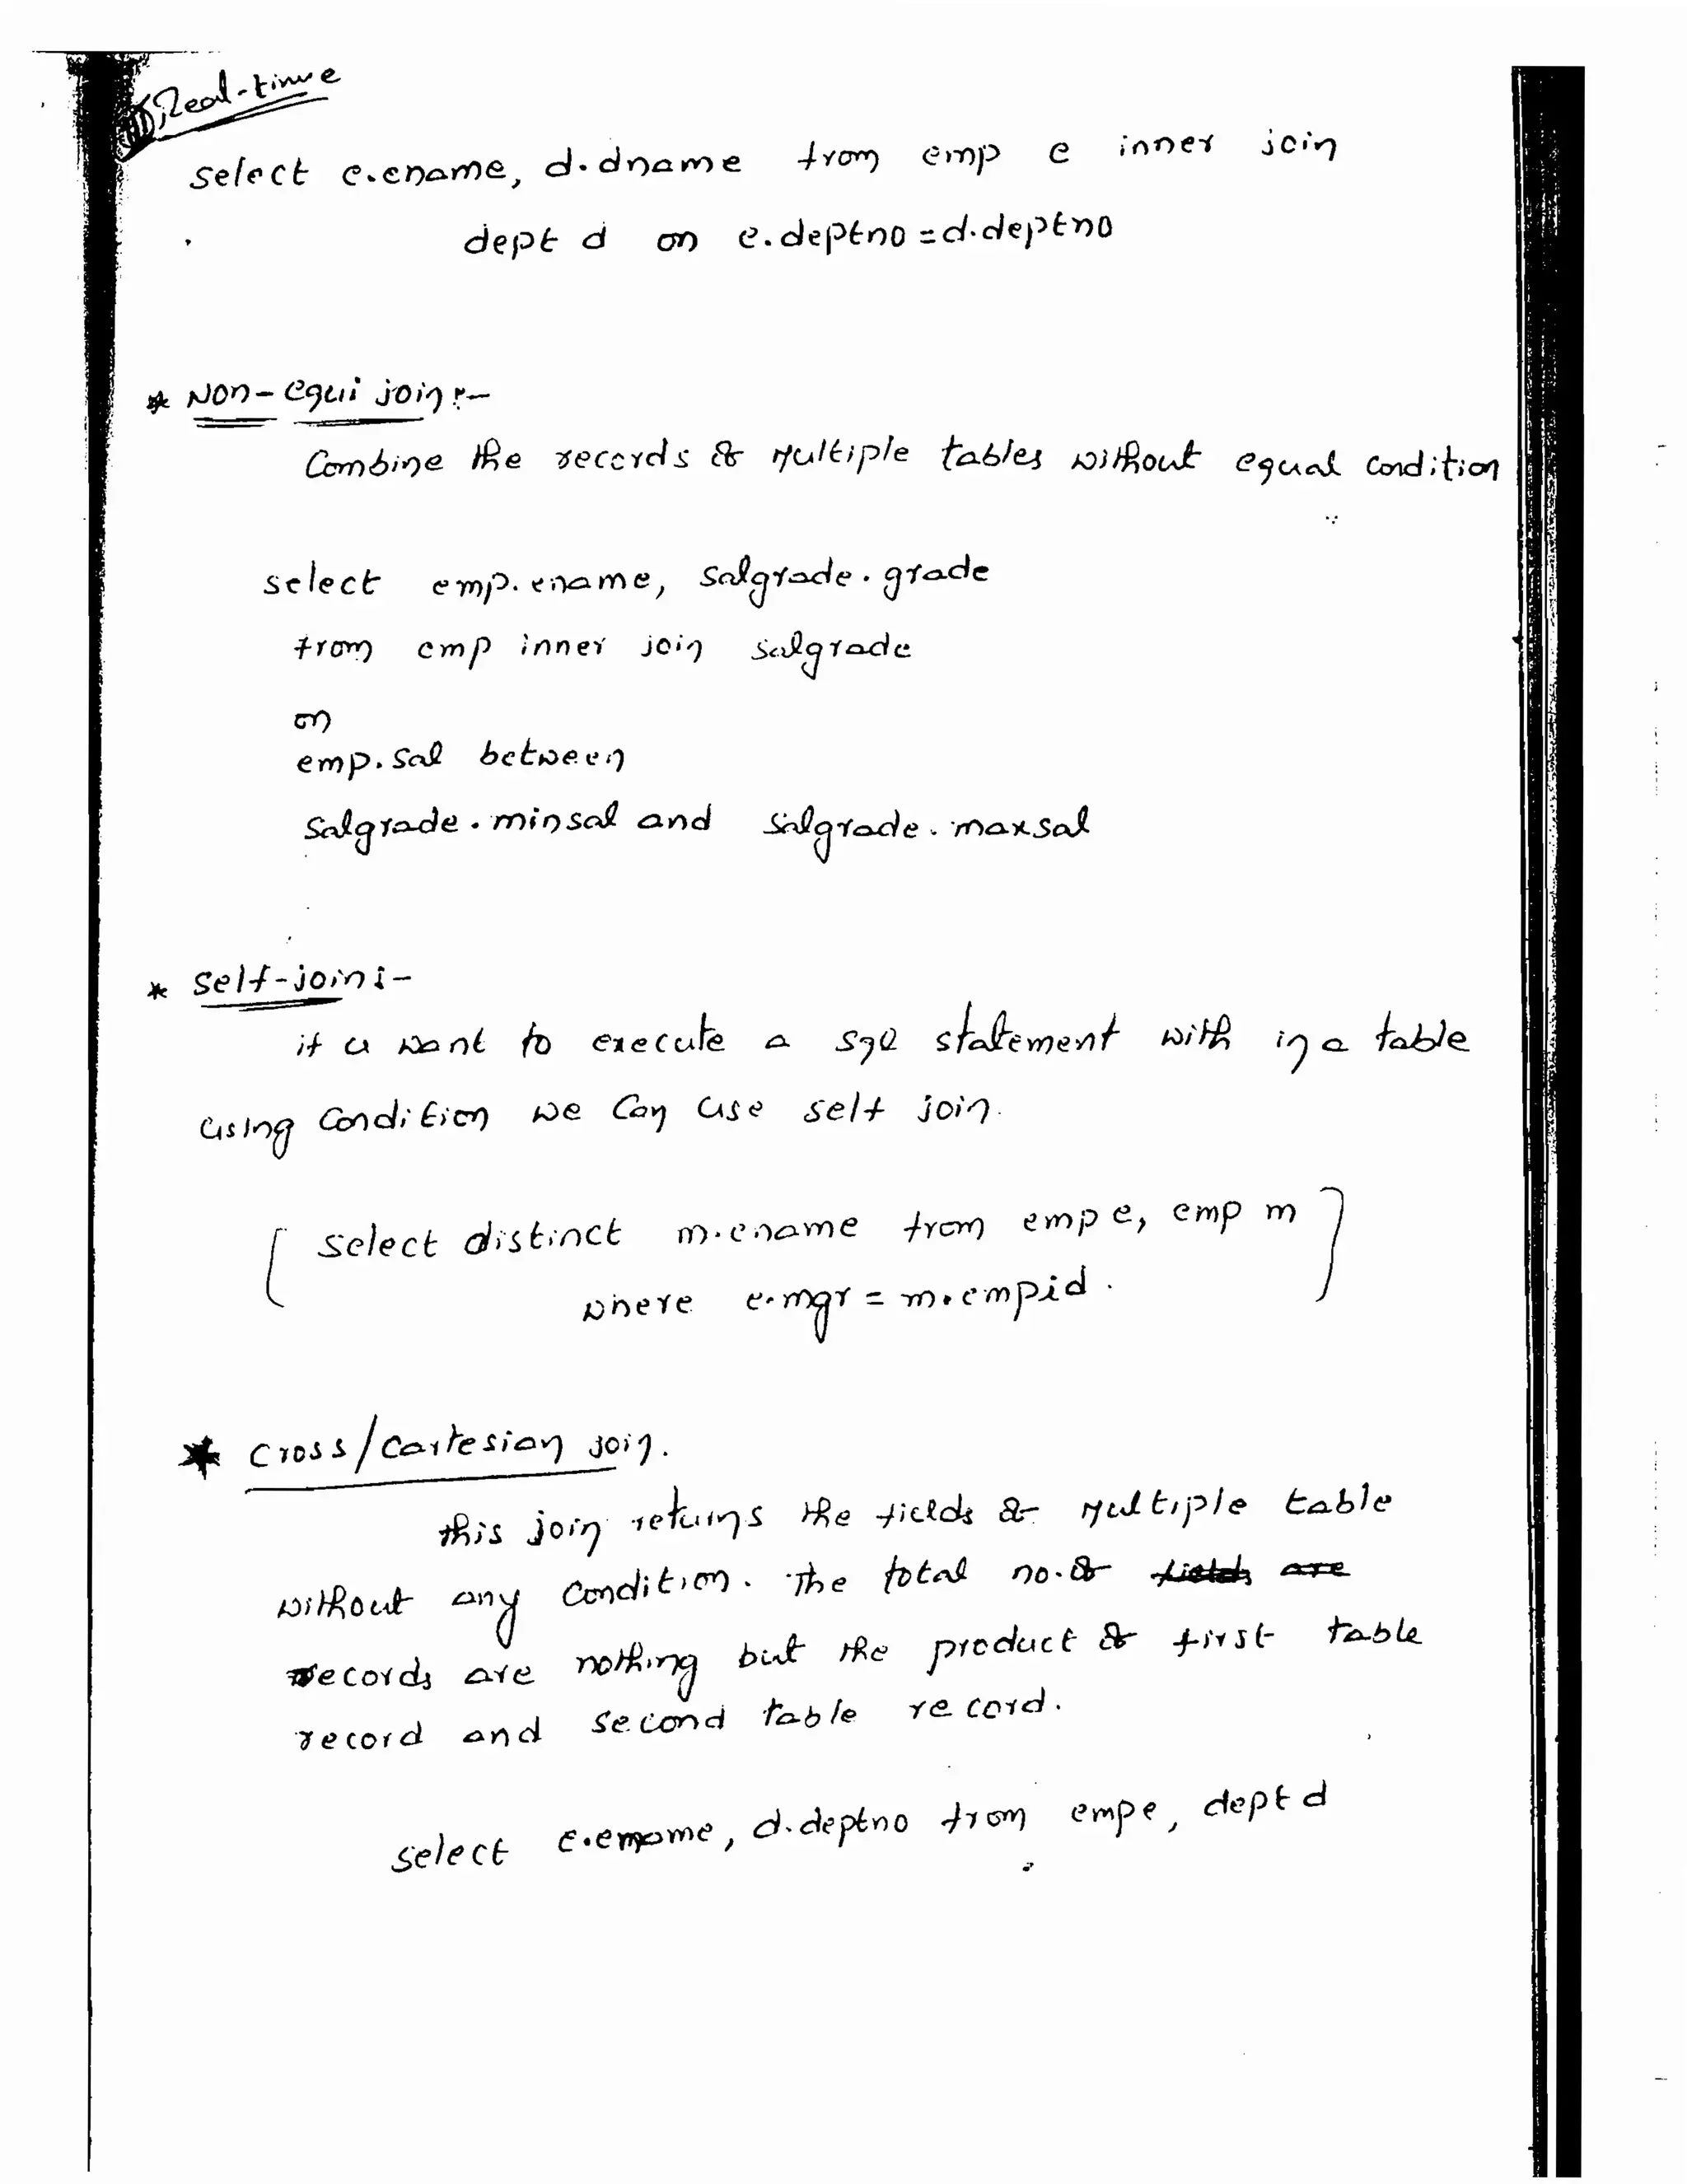 Real-time
select e.ename, d.dname from emp e inner join
dept d on e.deptno = d.deptno
* Non-equi join:-
Combine the records & Multiple tables without equal condition
select emp.ename, salgrade.grade
from emp inner join salgrade
on
emp.sal between
salgrade.minsal and salgrade.maxsal
* Self-join:-
if u want to execute a sql statement with in a table
using condition we can use self join.
[ Select distinct m.ename from emp e, emp m ]
where e.mgr = m.empid.
* Cross/Cartesian join.
this join returns the fields & Multiple table
without any condition. The total no. & fields are
records are nothing but the product & first table
record and second table record.
select e.ename, d.deptno from emp e, dept d